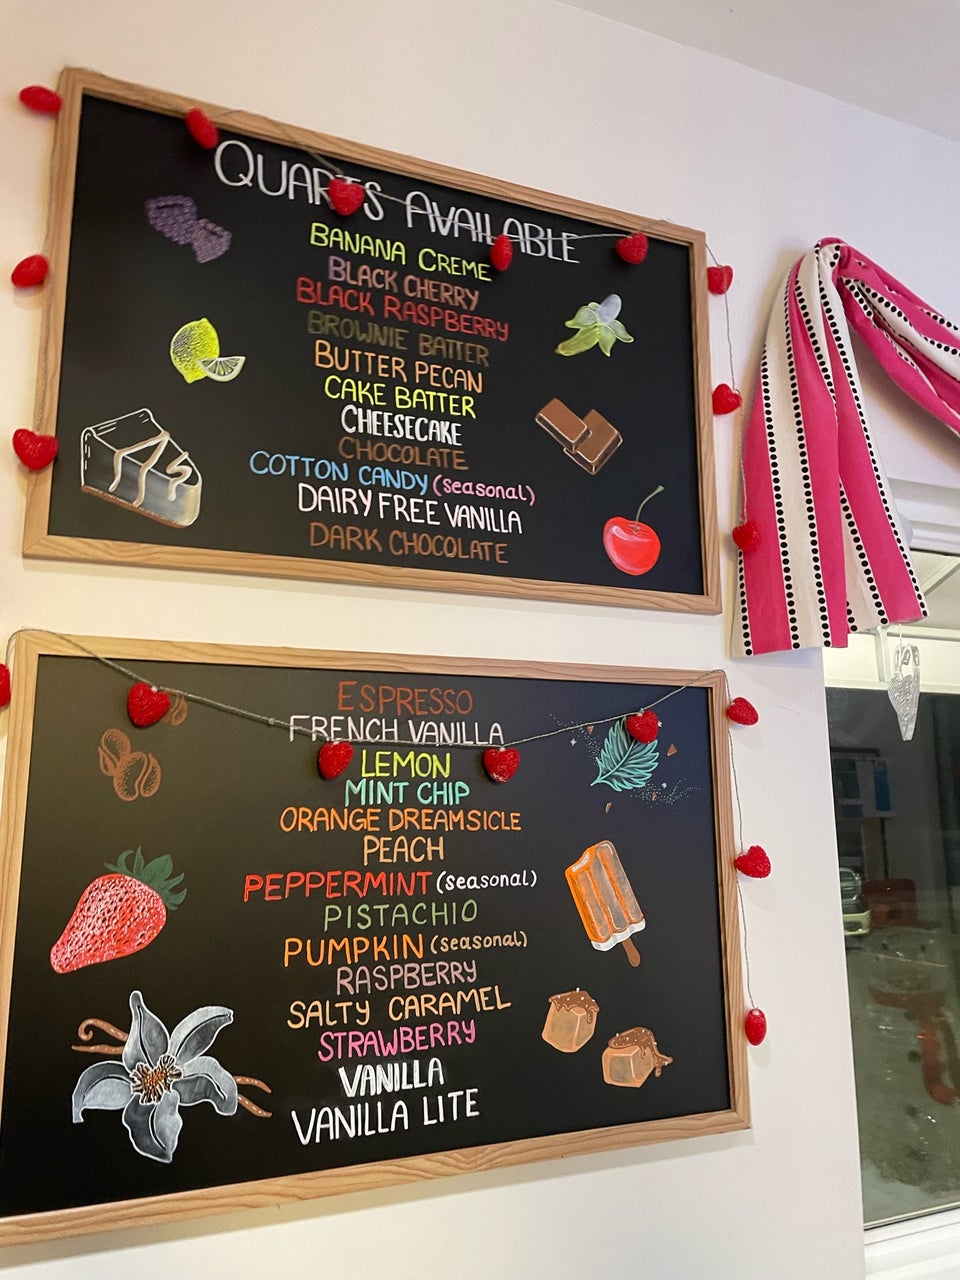 QUARTS AVAILABLE
BANANA CREME
BLACK CHERRY
BLACK RASPBERRY
BROWNIE BATTER
BUTTER PECAN
CAKE BATTER
CHEESECAKE
CHOCOLATE
COTTON CANDY (seasonal)
DAIRY FREE VANILLA
DARK CHOCOLATE
ESPRESSO
FRENCH VANILLA
LEMON
MINT CHIP
ORANGE DREAMSICLE
PEACH
PEPPERMINT (seasonal)
PISTACHIO
PUMPKIN (seasonal)
RASPBERRY
SALTY CARAMEL
STRAWBERRY
VANILLA
VANILLA LITE